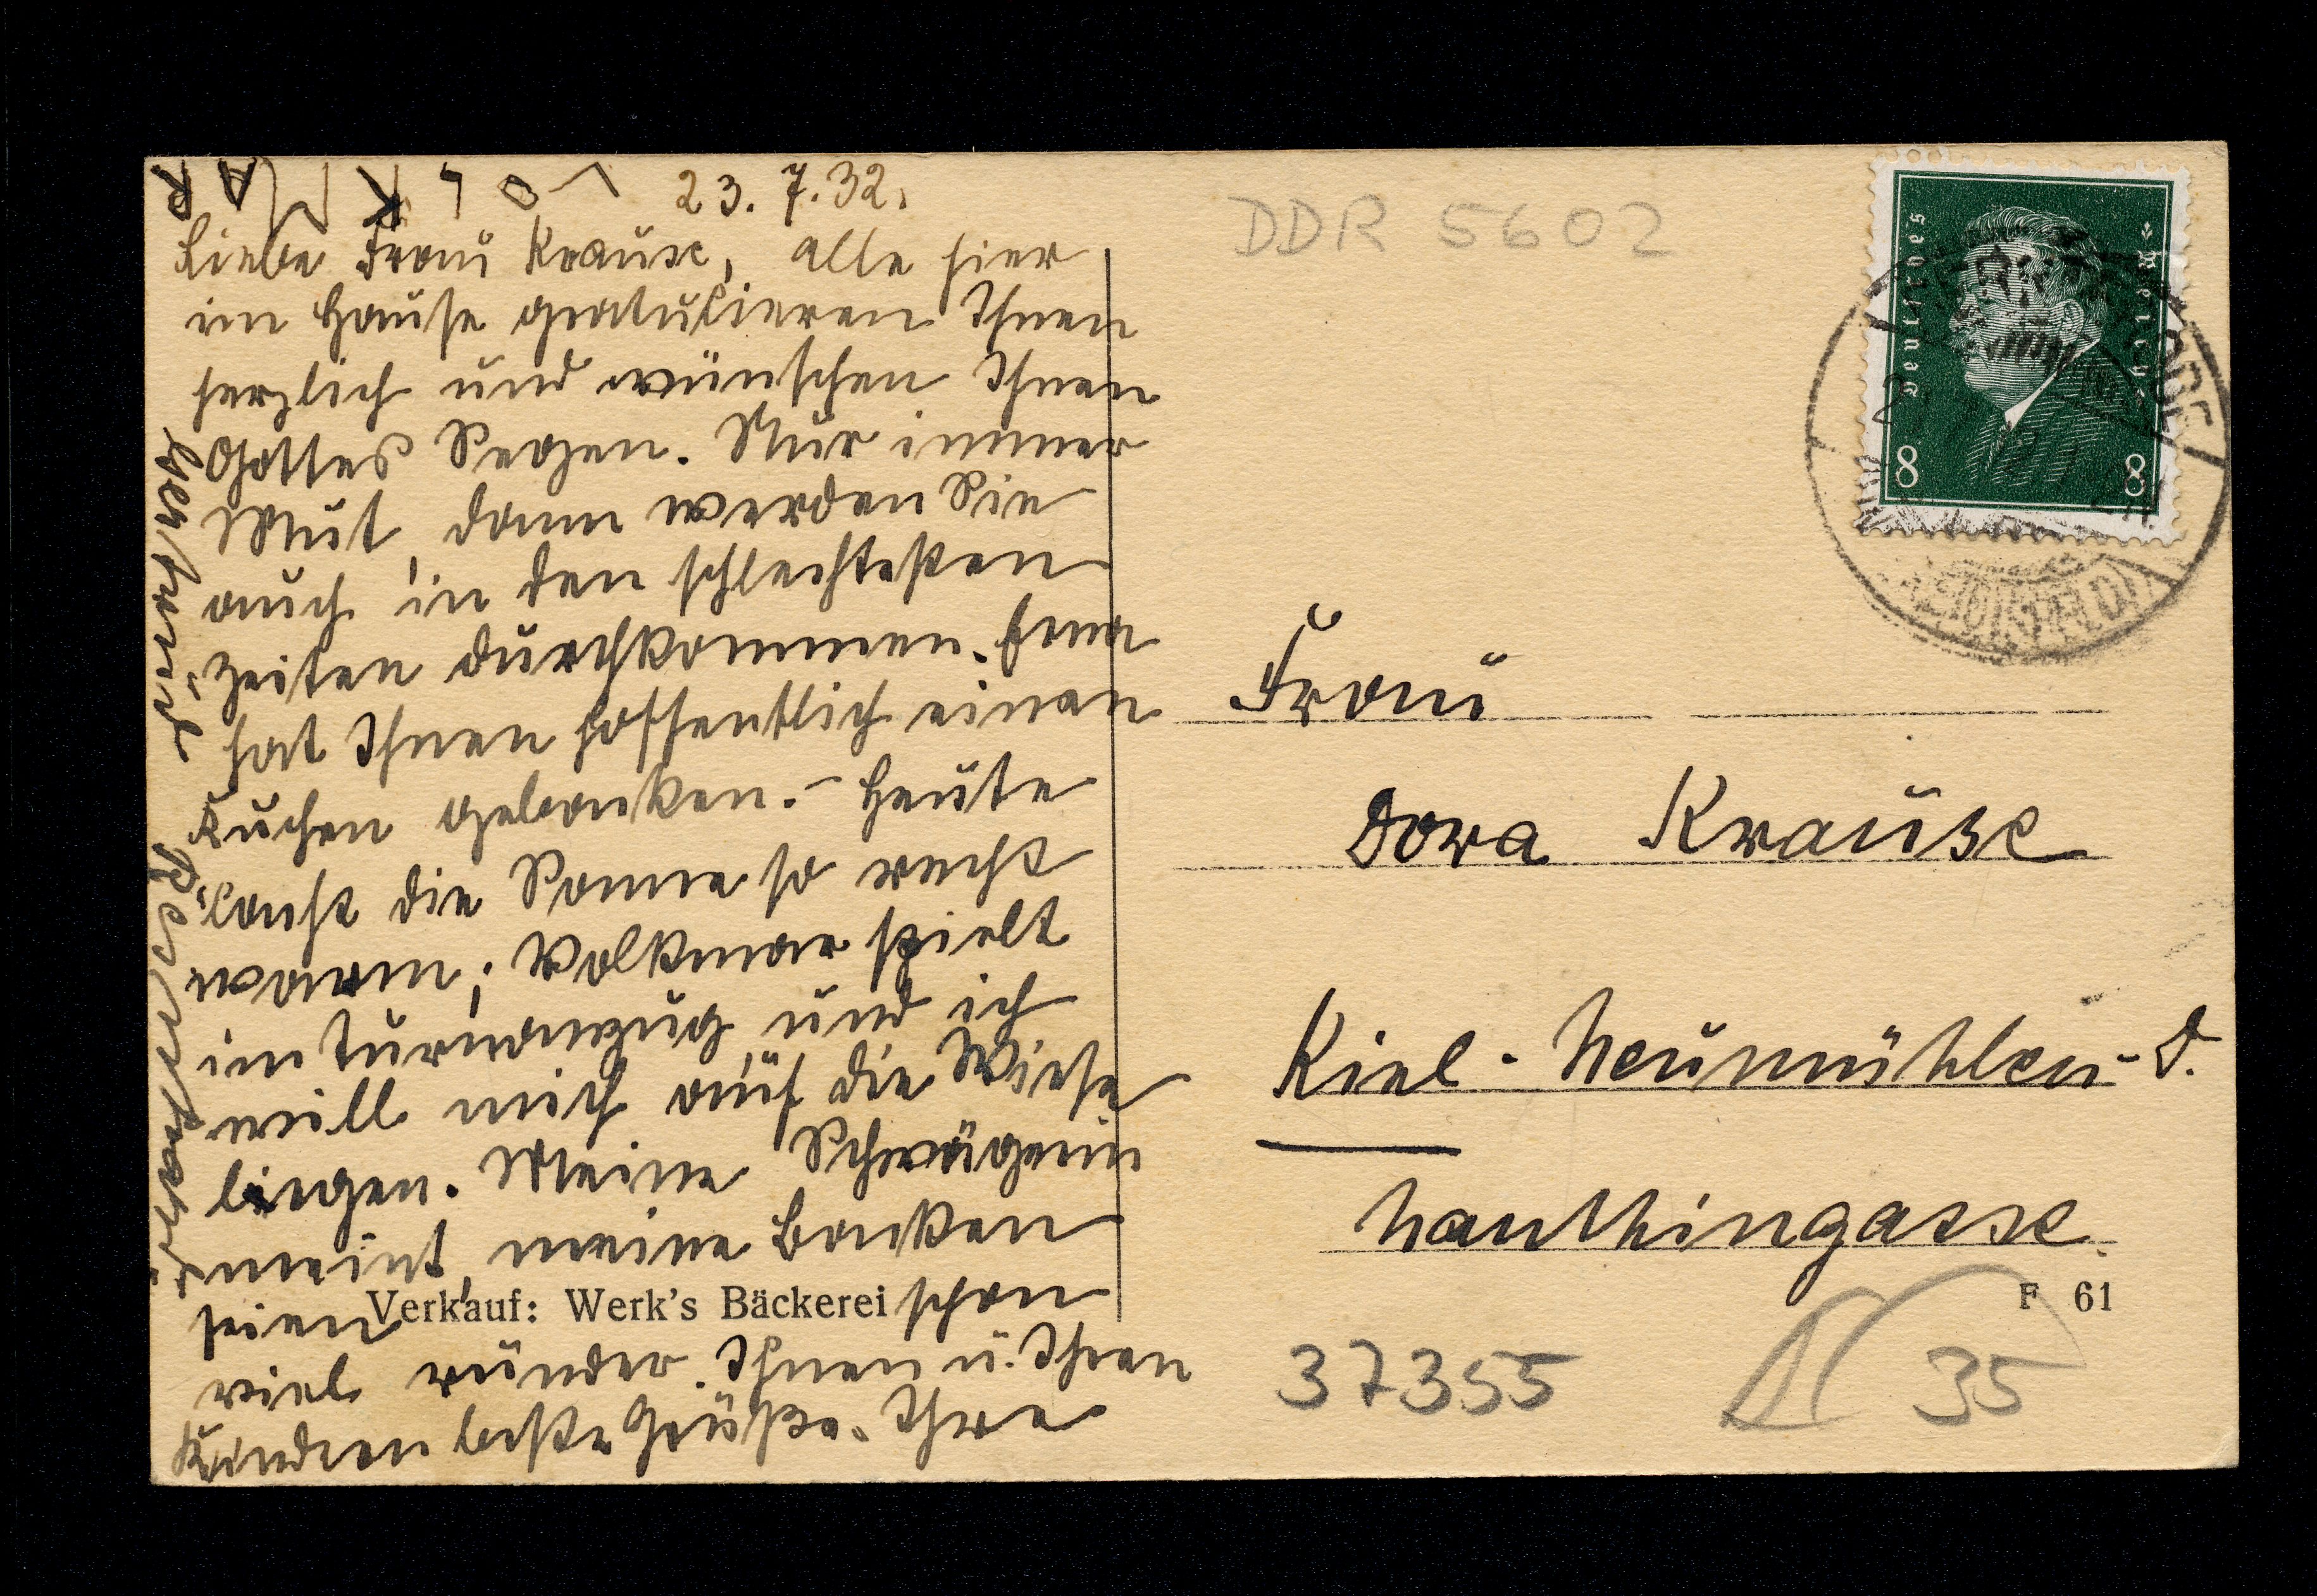 23. 7. 32.
Liebe Frau Krause, alle hier
im Hause gratulieren Ihnen
herzlich und wünschen Ihnen
Gottes Segen. Nur immer
Mut, dann werden Sie
auch in den schlechtesten
Zeiten durchkommen.
hat Ihnen hoffentlich einen
Kuchen gebacken. - Heute
die Sonne so recht
warm; Volkmar spielt
im Turnanzug und ich
will mich auf die Wiese
liegen. Meine Schwägerin
meint, meine Backen
seien schon
viel runder. Ihnen u. Ihren
Kindern beste Grüße. Ihre
VOLKMAR
Verkauf: Werk's Bäckerei
DDR 5602
Deutsches Reich
8 8
Frau
Dora Krause
Kiel-Neumühlen-D.
F 61
37355
35